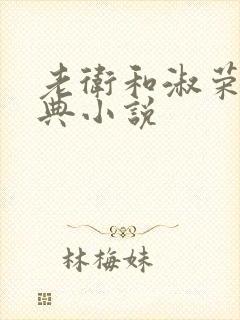 老衛和淑荣
典小说
林梅妹